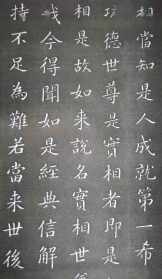 相當知是人成就第一希
功德世尊是實相者即是
相是故如來說名實相世
我今得聞如是經典信解
持不足為難若當來世後